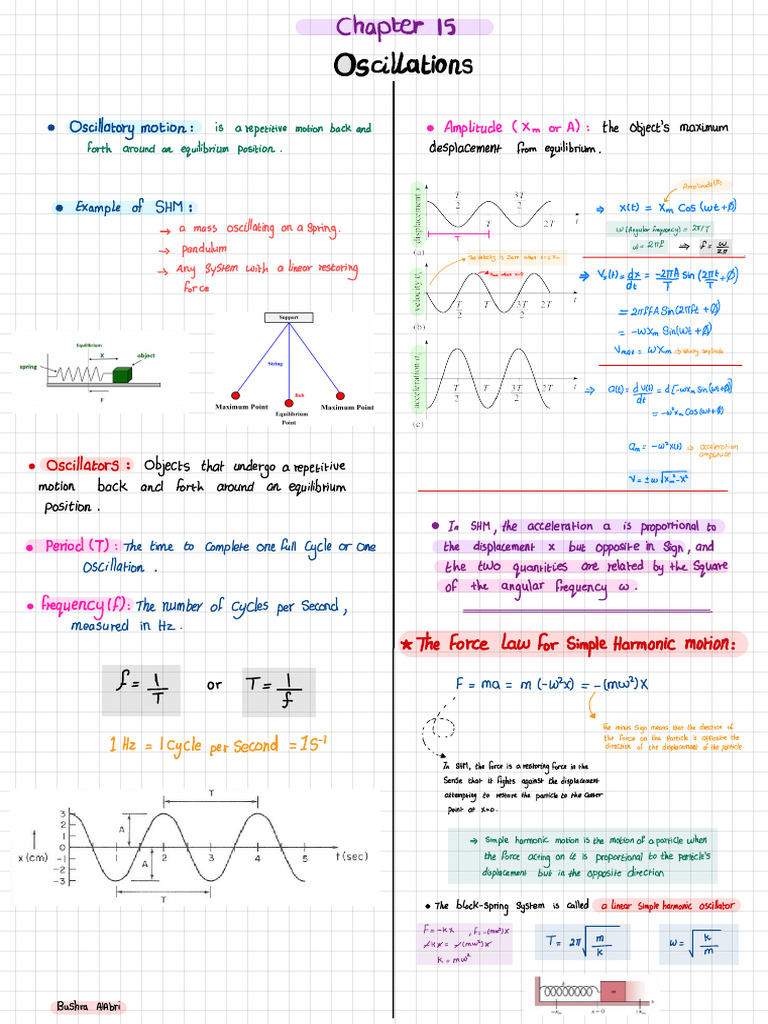 Chapter 15
Oscillations
• Oscillatory motion: is a repetitive motion back and
forth around an equilibrium position.
• Example of SHM:
→ a mass oscillating on a spring.
→ pandulum
→ Any system with a linear restoring
force
Equilibrium
X
spring
object
F
Support
String
Bob
Maximum Point
Equilibrium
Point
Maximum Point
• Oscillators: Objects that undergo a repetitive
motion back and forth around an equilibrium
position.
• Period (T): The time to complete one full cycle or one
oscillation.
• frequency (f): The number of cycles per second,
measured in Hz.
f = 1/T or T = 1/f
1 Hz = 1 cycle per second = 1 S⁻¹
T
3
2
1
0
-1
-2
-3
x (cm)
A
A
1 2 3 4 5
t (sec)
T
Bushra AlAbri
• Amplitude (Xm or A): the object's maximum
desplacement from equilibrium.
displacement x
T/2 T 3T/2 2T t
T
(a)
Amplitude(A)
⇒ x(t) = Xm Cos (ωt+∅)
ω (Angular frequency) = 2π/T
ω = 2πf ⇒ f = ω/2π
The velocity is zero when
velocity vx
T/2 T 3T/2 2T t
(b)
⇒ Vx(t) = dx/dt = -2πA/T Sin (2πt/T + ∅)
= 2πf A Sin (2πft + ∅)
= -ωXm Sin(ωt + ∅)
Vmax = ωXm ⇒ velocity amplitude
acceleration ax
T/2 T 3T/2 2T t
(c)
⇒ a(t) = dV(t)/dt = d[-ωxm Sin(ωt+∅)]
= -ω²xm Cos(ωt+∅)
am = -ω²x(t) ⇒ acceleration
amplitude
V = ±ω√Xm²-X²
• In SHM, the acceleration a is proportional to
the displacement x but opposite in sign, and
the two quantities are related by the square
of the angular frequency ω.
★ The force law for simple Harmonic motion:
F = ma = m (-ω²x) = -(mω²)X
The minus sign means that the direction of
the force on the particle is opposite the
direction of the displacement of the particle
In SHM, the force is a restoring force in the
sense that it fights against the displacement
attempting to restore the particle to the center
point at x=0.
→ simple harmonic motion is the motion of a particle when
the force acting on it is proportional to the particle's
displacement but in the opposite direction
• The block-spring system is called a linear simple harmonic oscillator
F = -kx , F = -(mω²)x
-kx = -(mω²)x
k = mω²
T = 2π√m/k
ω = √k/m
k
m
-xm x = 0 +xm
x